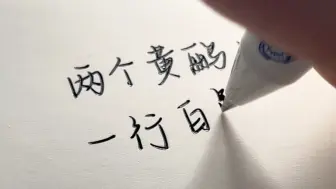 两个黄鹂
一行白